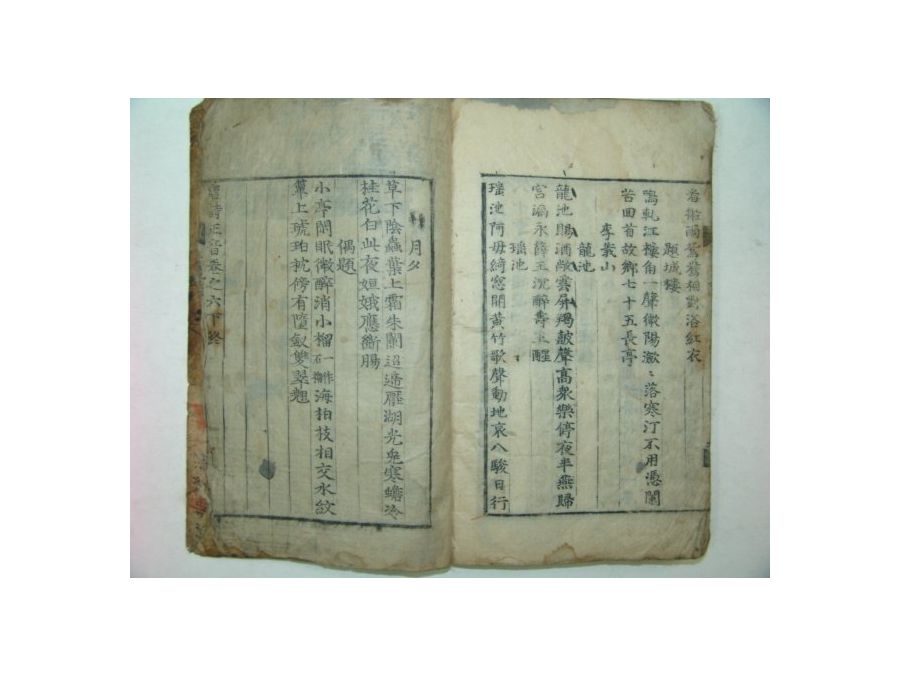 若耶陽鴛鴦相對浴紅衣
題城樓
鳴軋江樓角一聲微陽瀲〻落寒汀不用憑闌
苦回首故鄉七十五長亭
李義山
龍池
龍池賜酒敞雲屏羯皷聲高衆樂停夜半燕歸
宮漏永薛王沉醉壽王醒
瑤池
瑤池阿母綺窓開黃竹歌聲動地哀八駿日行
月夕
草下陰蟲葉上霜朱闌迢遞壓湖光兎寒蟾冷
桂花白此夜姮娥應斷腸
偶題
小亭閑眠微醉消小榴一作石榴海柏枝相交水紋
簟上琥珀枕傍有墮釵雙翠翹
唐詩正音卷之六下終